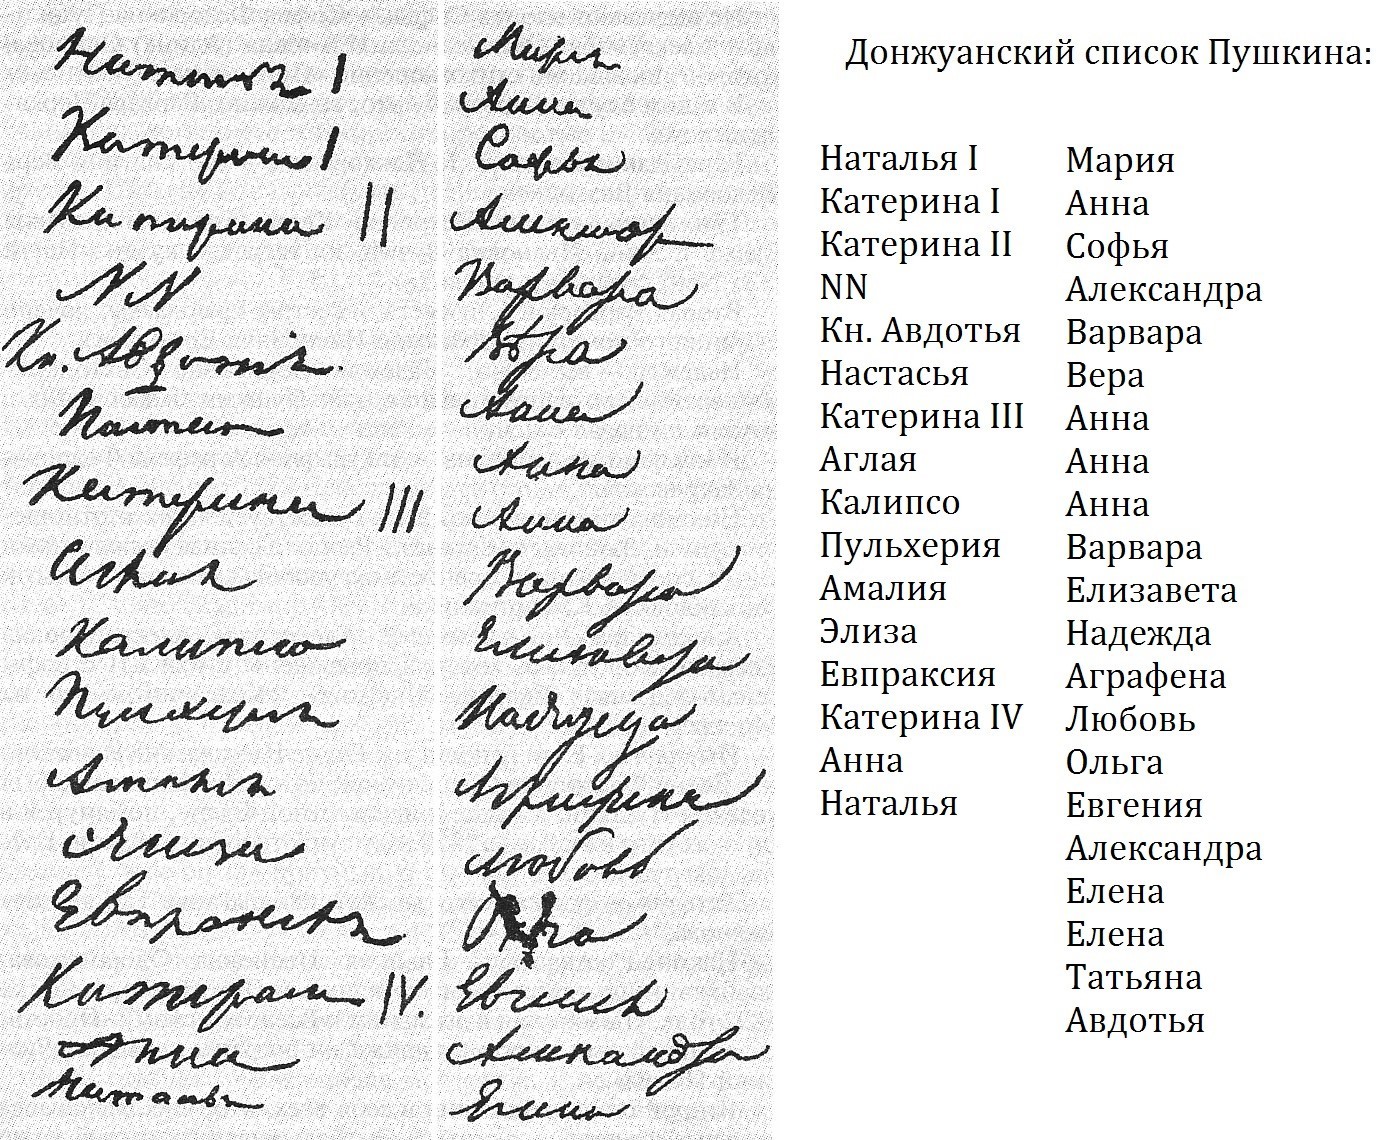 Наталья I
Катерина I
Катерина II
NN
Кн. Авдотья
Настасья
Катерина III
Аглая
Калипсо
Пульхерия
Амалия
Элиза
Евпраксия
Катерина IV.
Анна
Наталья
Мария
Анна
Софья
Александра
Варвара
Вѣра
Анна
Анна
Анна
Варвара
Елизавета
Надежда
Аграфена
Любовь
Ольга
Евгения
Александра
Елена
Донжуанский список Пушкина:
Наталья I
Катерина I
Катерина II
NN
Кн. Авдотья
Настасья
Катерина III
Аглая
Калипсо
Пульхерия
Амалия
Элиза
Евпраксия
Катерина IV
Анна
Наталья
Мария
Анна
Софья
Александра
Варвара
Вера
Анна
Анна
Анна
Варвара
Елизавета
Надежда
Аграфена
Любовь
Ольга
Евгения
Александра
Елена
Елена
Татьяна
Авдотья